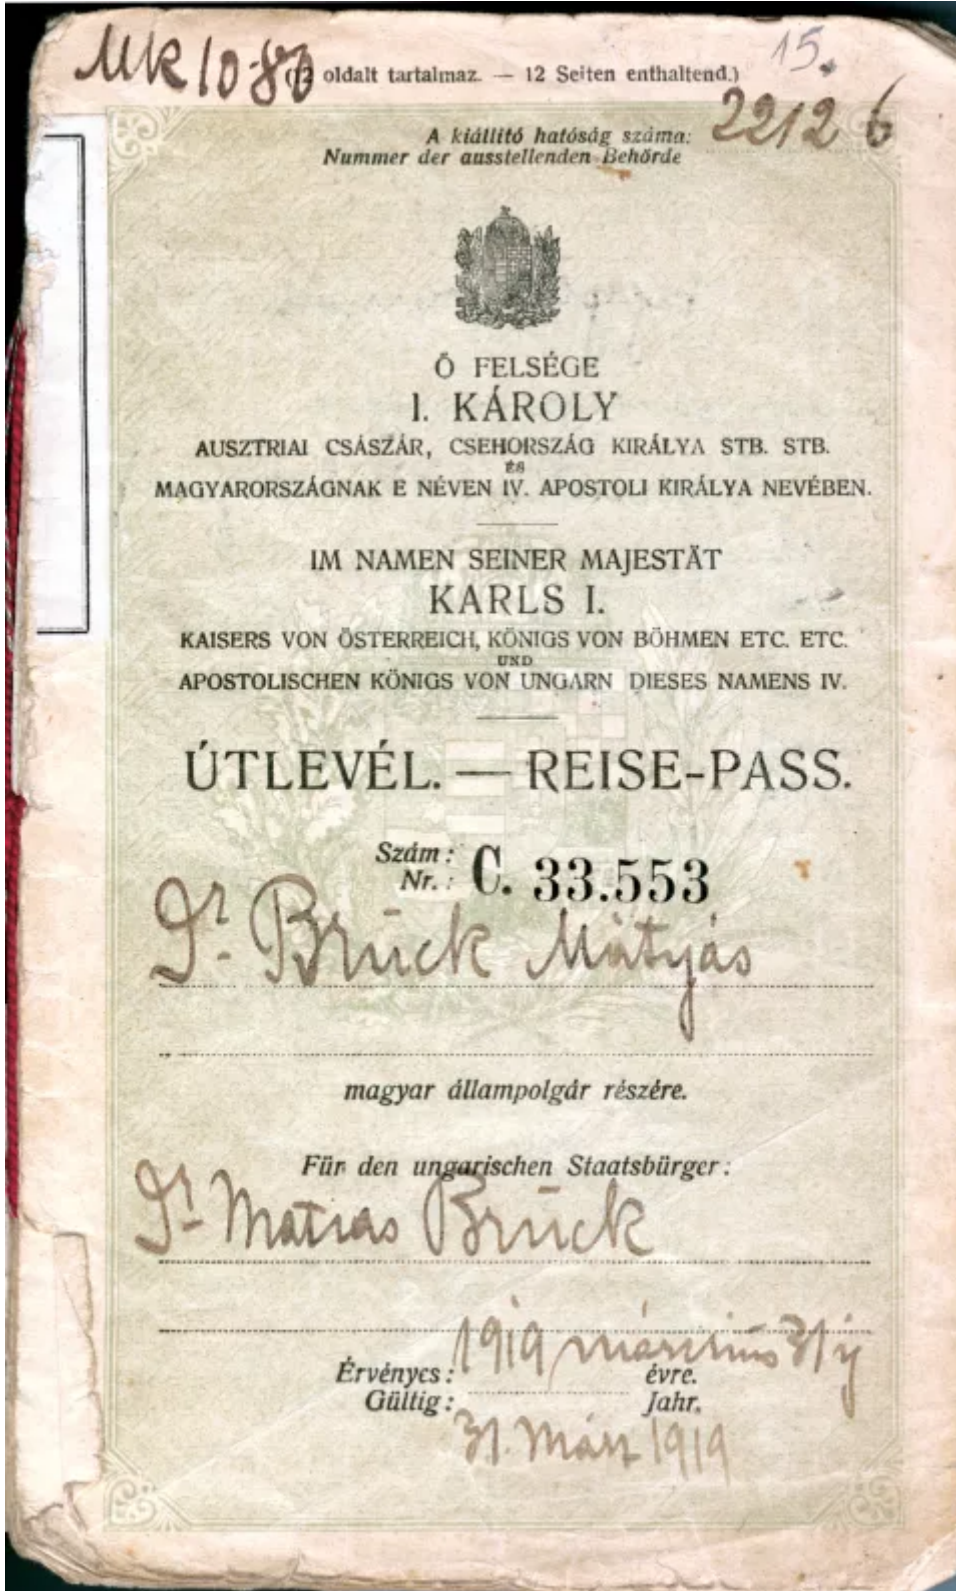 MK 10-80 15.
(12 oldalt tartalmaz. — 12 Seiten enthaltend.)
A kiállitó hatóság száma:
Nummer der ausstellenden Behörde
2212 6
Ő FELSÉGE
I. KÁROLY
AUSZTRIAI CSÁSZÁR, CSEHORSZÁG KIRÁLYA STB. STB.
ÉS
MAGYARORSZÁGNAK E NÉVEN IV. APOSTOLI KIRÁLYA NEVÉBEN.
IM NAMEN SEINER MAJESTÄT
KARLS I.
KAISERS VON ÖSTERREICH, KÖNIGS VON BÖHMEN ETC. ETC.
UND
APOSTOLISCHEN KÖNIGS VON UNGARN DIESES NAMENS IV.
ÚTLEVÉL. — REISE-PASS.
Szám:
Nr.: C. 33.553
Dr. Brück Mátyás
magyar állampolgár részére.
Für den ungarischen Staatsbürger:
Dr Matias Brück
1919 március 31 ig
Érvényes: évre.
Gültig: Jahr.
31. März 1919